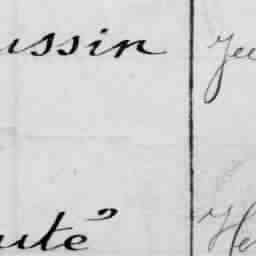 ussin Je
uté He